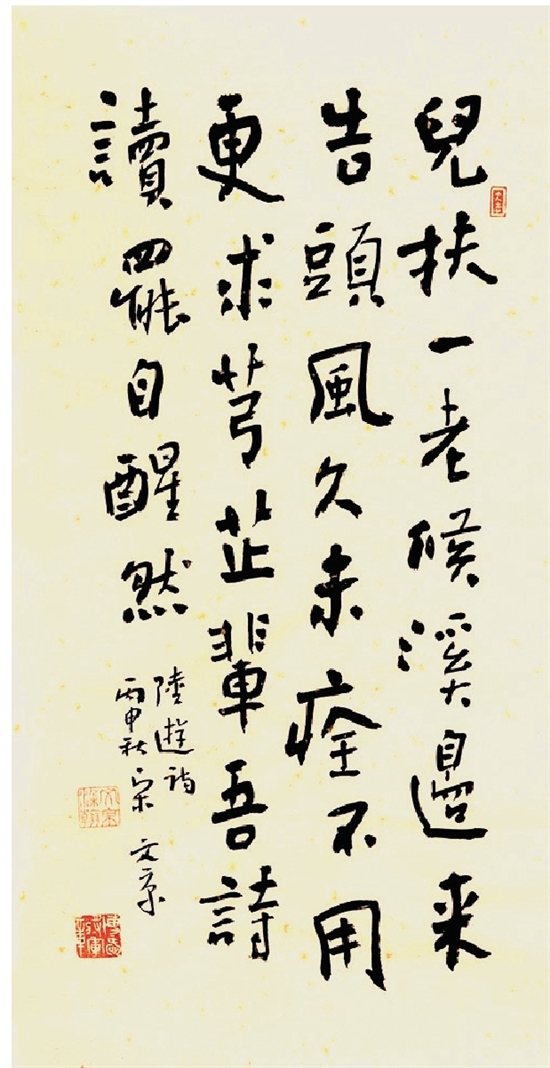 兒扶一老候溪邊来
告頭風久未痊不用
更求芎芷輩吾詩
讀罷自醒然
陸遊詩
丙申秋宋文京